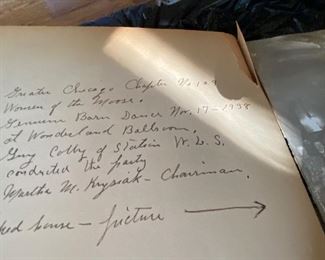 Greater Chicago Chapter No.
Women of the Moose.
Genuine Barn Dance Nov. 17-1938
at Wonderland Ballroom.
Guy Colby of Station W.L.S.
conducted the party
Martha M. Krysiak - Chairman.
house - picture